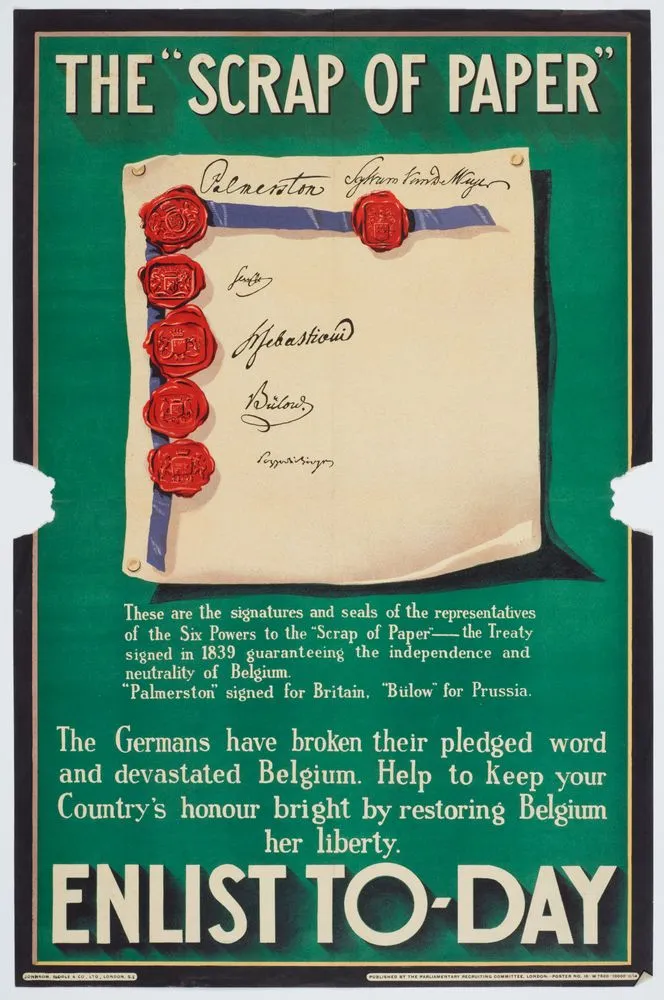 THE “SCRAP OF PAPER”
Palmerston Sylvain Van de Weyer
Senfft
H Sebastiani
Bülow.
Pozzo di Borgo
These are the signatures and seals of the representatives
of the Six Powers to the “Scrap of Paper”—the Treaty
signed in 1839 guaranteeing the independence and
neutrality of Belgium.
“Palmerston” signed for Britain, “Bülow” for Prussia.
The Germans have broken their pledged word
and devastated Belgium. Help to keep your
Country's honour bright by restoring Belgium
her liberty.
ENLIST TO-DAY
JOHNSON, RIDDLE & CO., LTD., LONDON, S.E.
PUBLISHED BY THE PARLIAMENTARY RECRUITING COMMITTEE, LONDON.—POSTER NO. 15